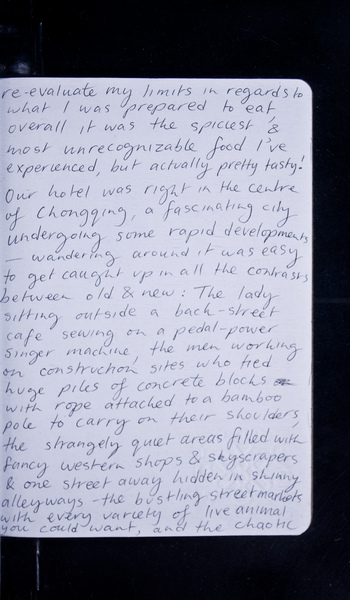 re-evaluate my limits in regards to
what I was prepared to eat,
overall it was the spiciest &
most unrecognizable food I've
experienced, but actually pretty tasty!
Our hotel was right in the centre
of Chongqing, a fascinating city
undergoing some rapid developments
— wandering around it was easy
to get caught up in all the contrasts
between old & new: The lady
sitting outside a back-street
cafe sewing on a pedal-power
Singer machine, the men working
on construction sites who tied
huge piles of concrete blocks
with rope attached to a bamboo
pole to carry on their shoulders,
the strangely quiet areas filled with
fancy western shops & skyscrapers
& one street away hidden in skinny
alleyways - the bustling street markets
with every variety of live animal
you could want, and the chaotic